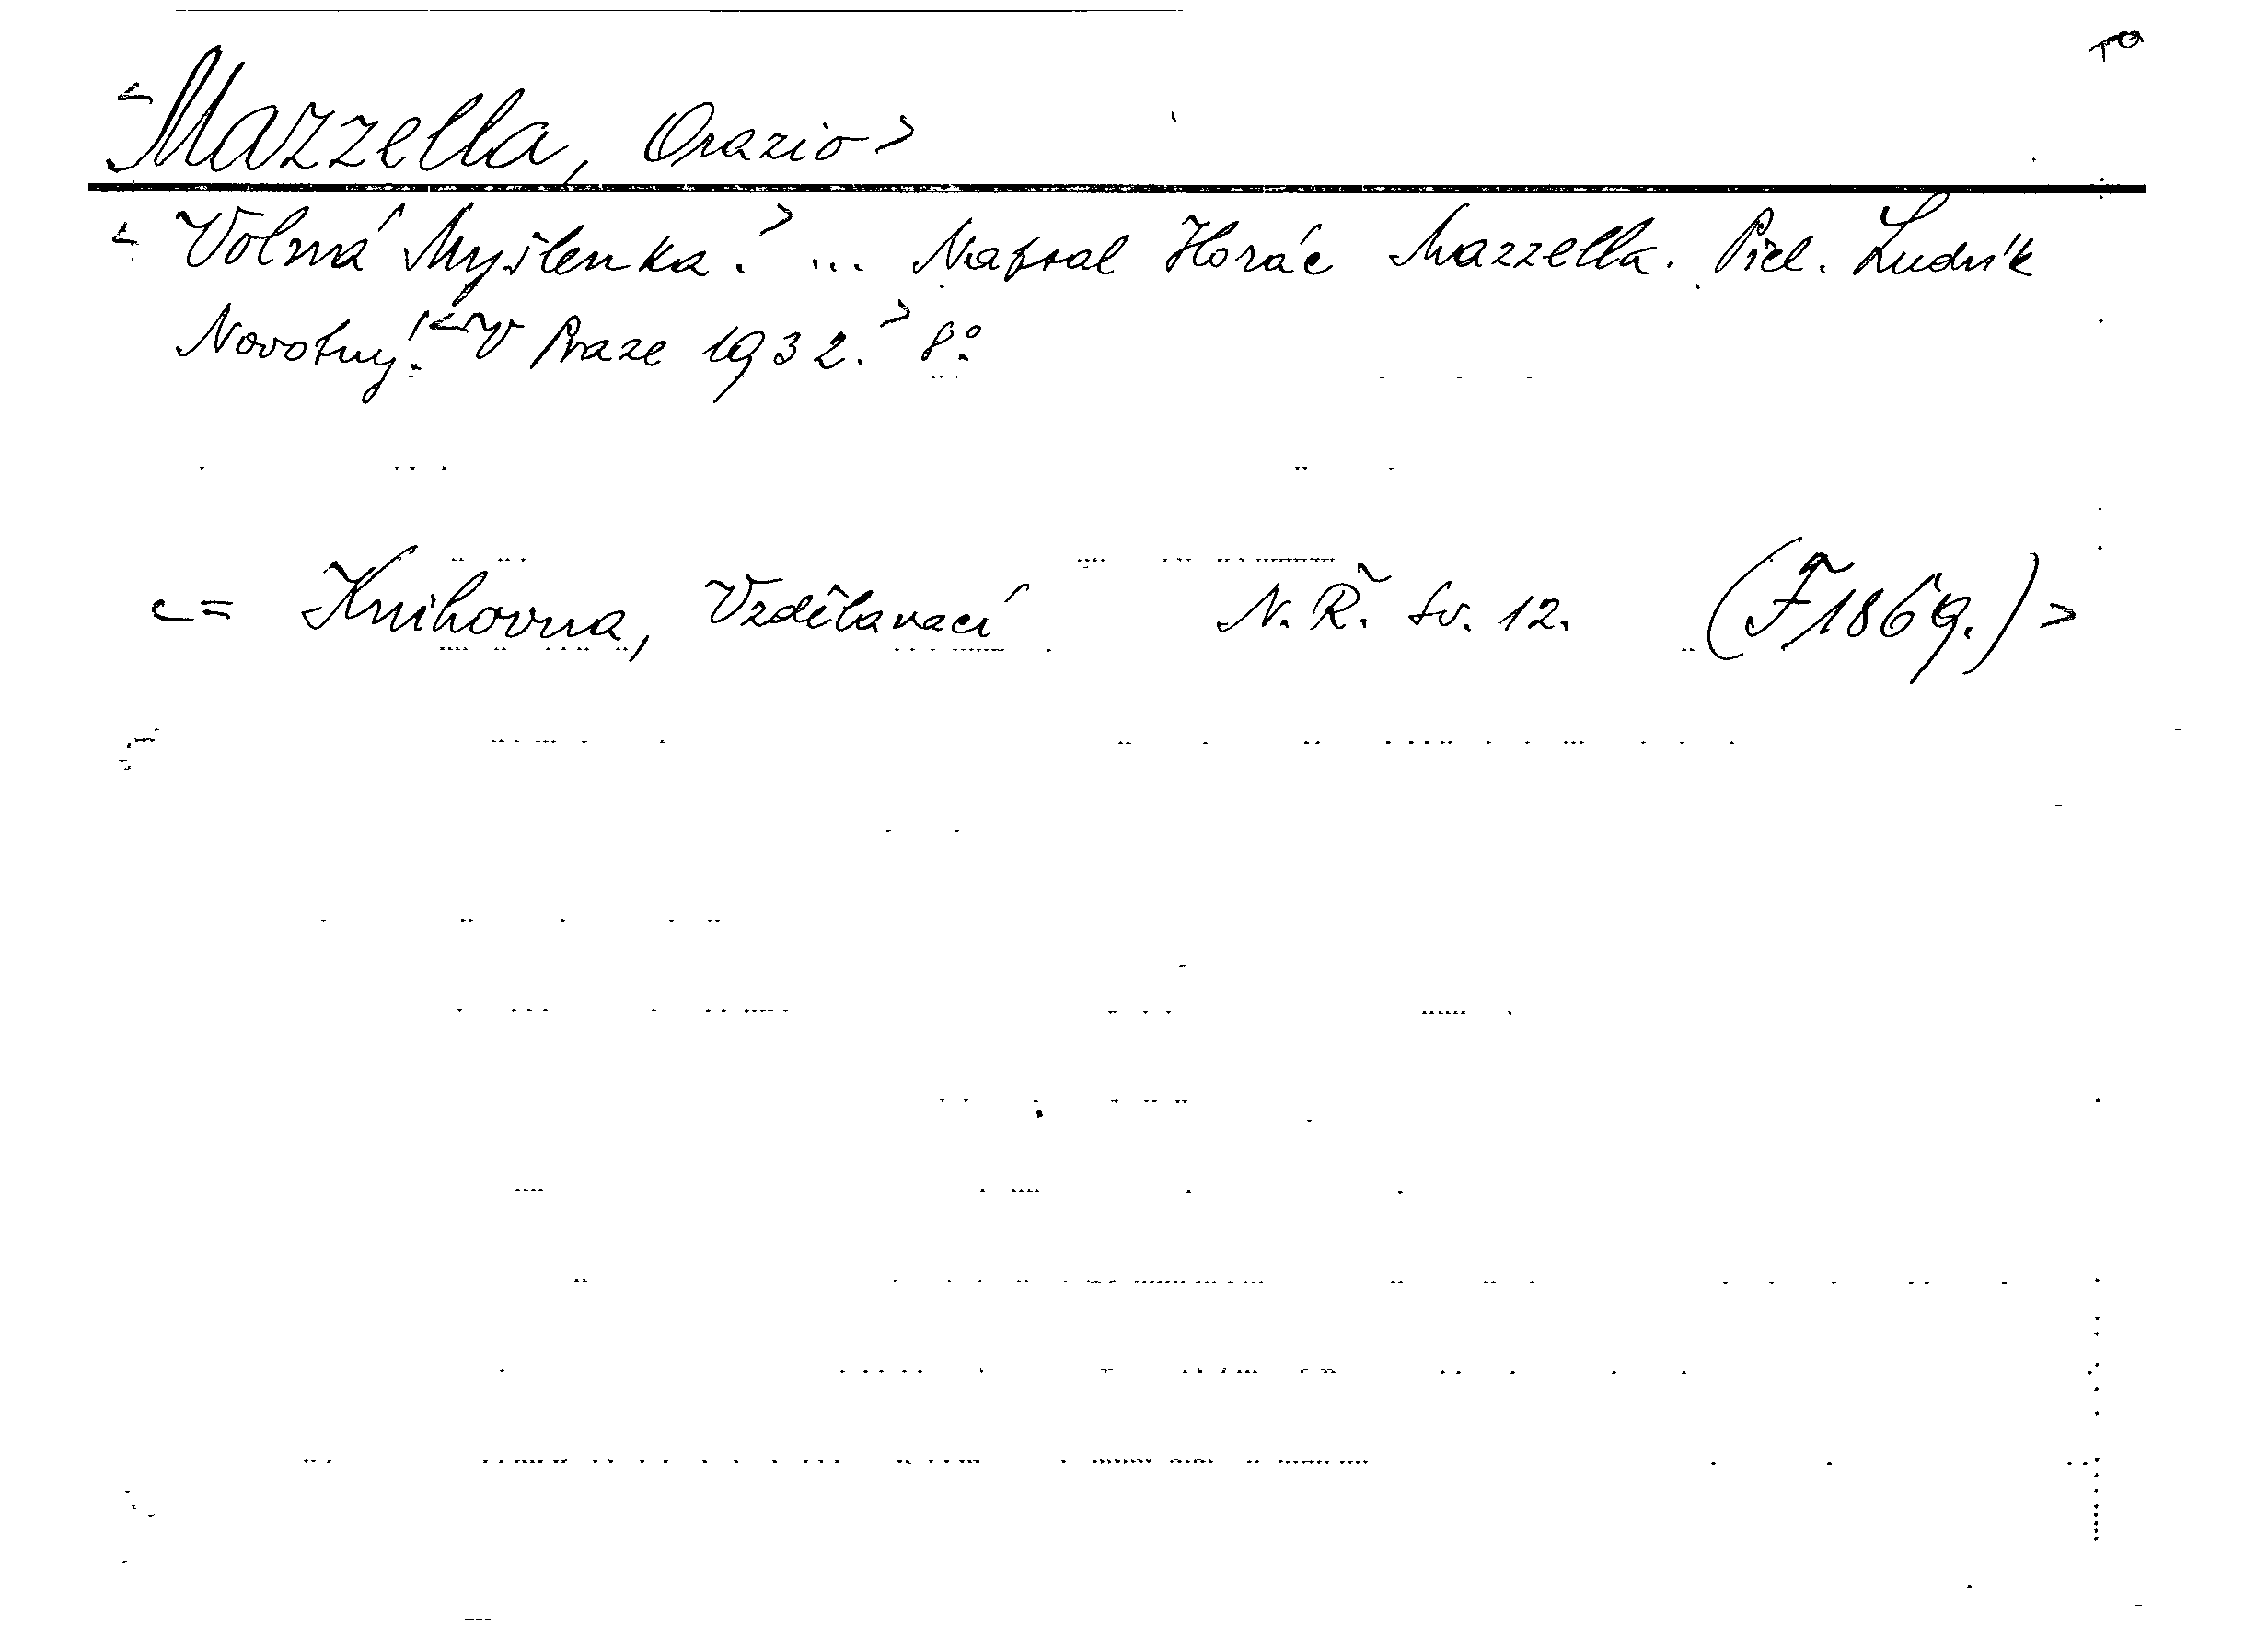 <Mazzella, Orazio>
<Volná Myšlenka.> ... Napsal Horác Mazzella. Přel. Ludvík
Novotný. <V Praze 1932.> 8°.
<= Knihovna, Vzdělavací N. Ř. sv. 12. (F 1869.)>